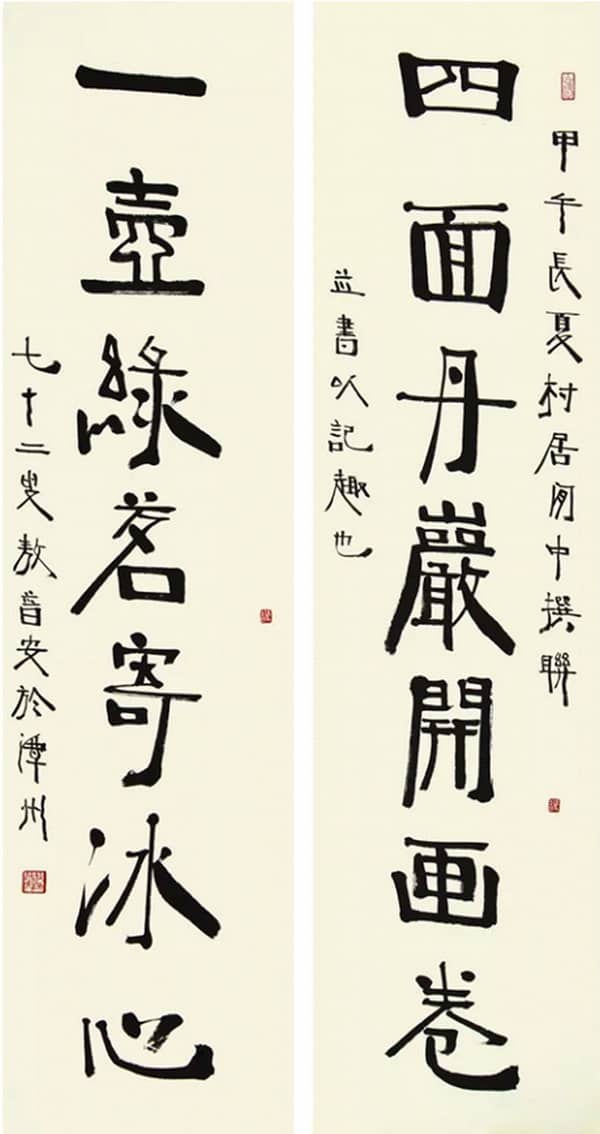 甲午長夏村居閒中撰聯
四面丹巖開画卷
並書以記趣也
一壺綠茗寄冰心
七十二叟敖普安於潭州